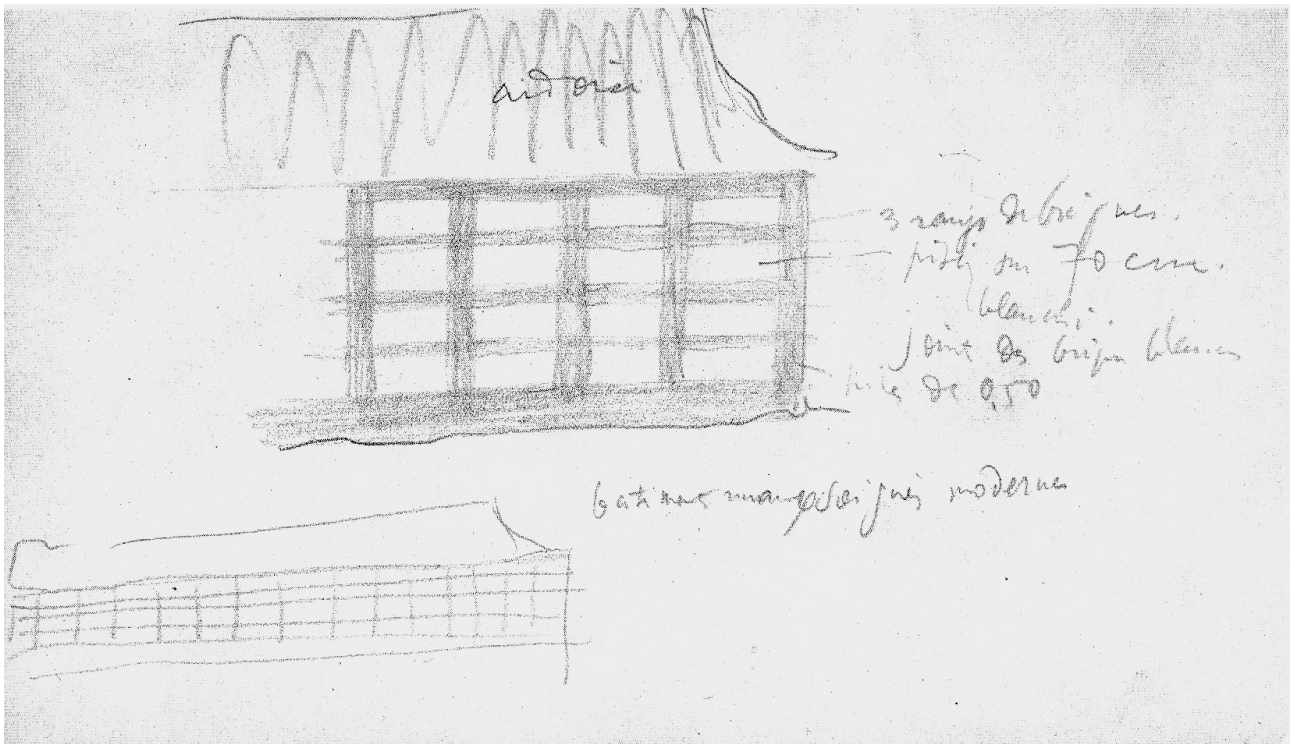 ardoise
3 rangs de briques.
pisé sur 70 cm.
blanchi.
joint des briques blancs
pile de 0,50
bâtiments soignés modernes